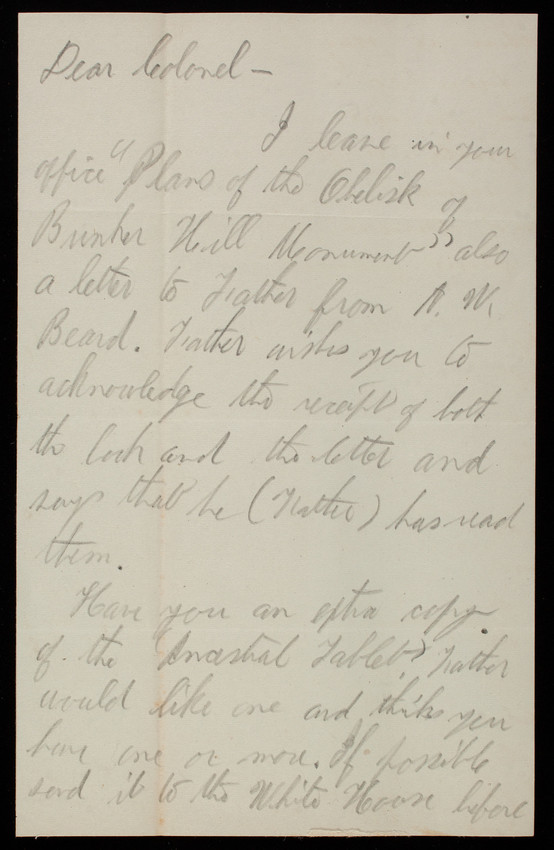 Dear Colonel –
I leave in your
office "Plans of the Obelisk of
Bunker Hill Monument" also
a letter to Father from A. W.
Beard. Father wishes you to
acknowledge the receipt of both
the book and the letter and
says that he (Father) has read
them.
Have you an extra copy
of the Ancestral Tablet? Father
would like one and thinks you
have one or more. If possible
send it to the White House before